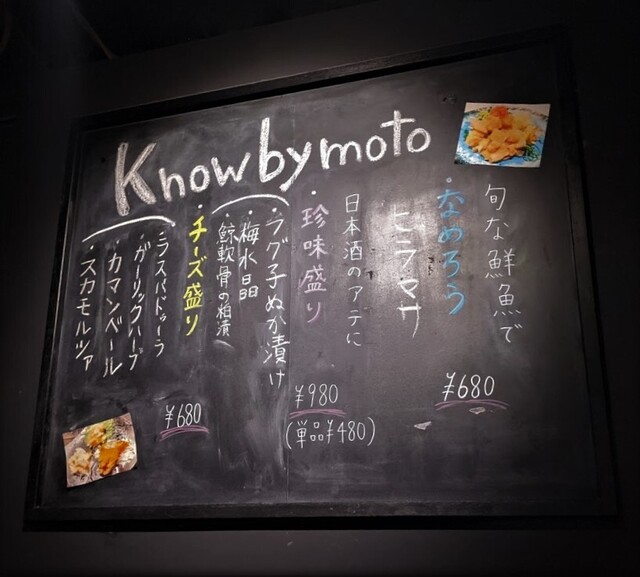 Knowbymoto
旬な鮮魚で
・なめろう
ヒラマサ
¥680
日本酒のアテに
・珍味盛り
・フグ子ぬか漬け
・梅水晶
・鯨軟骨の粕漬
¥980
(単品¥480)
・チーズ盛り
・ラスパドゥーラ
・ガーリックハーブ
・カマンベール
・スカモルツァ
¥680